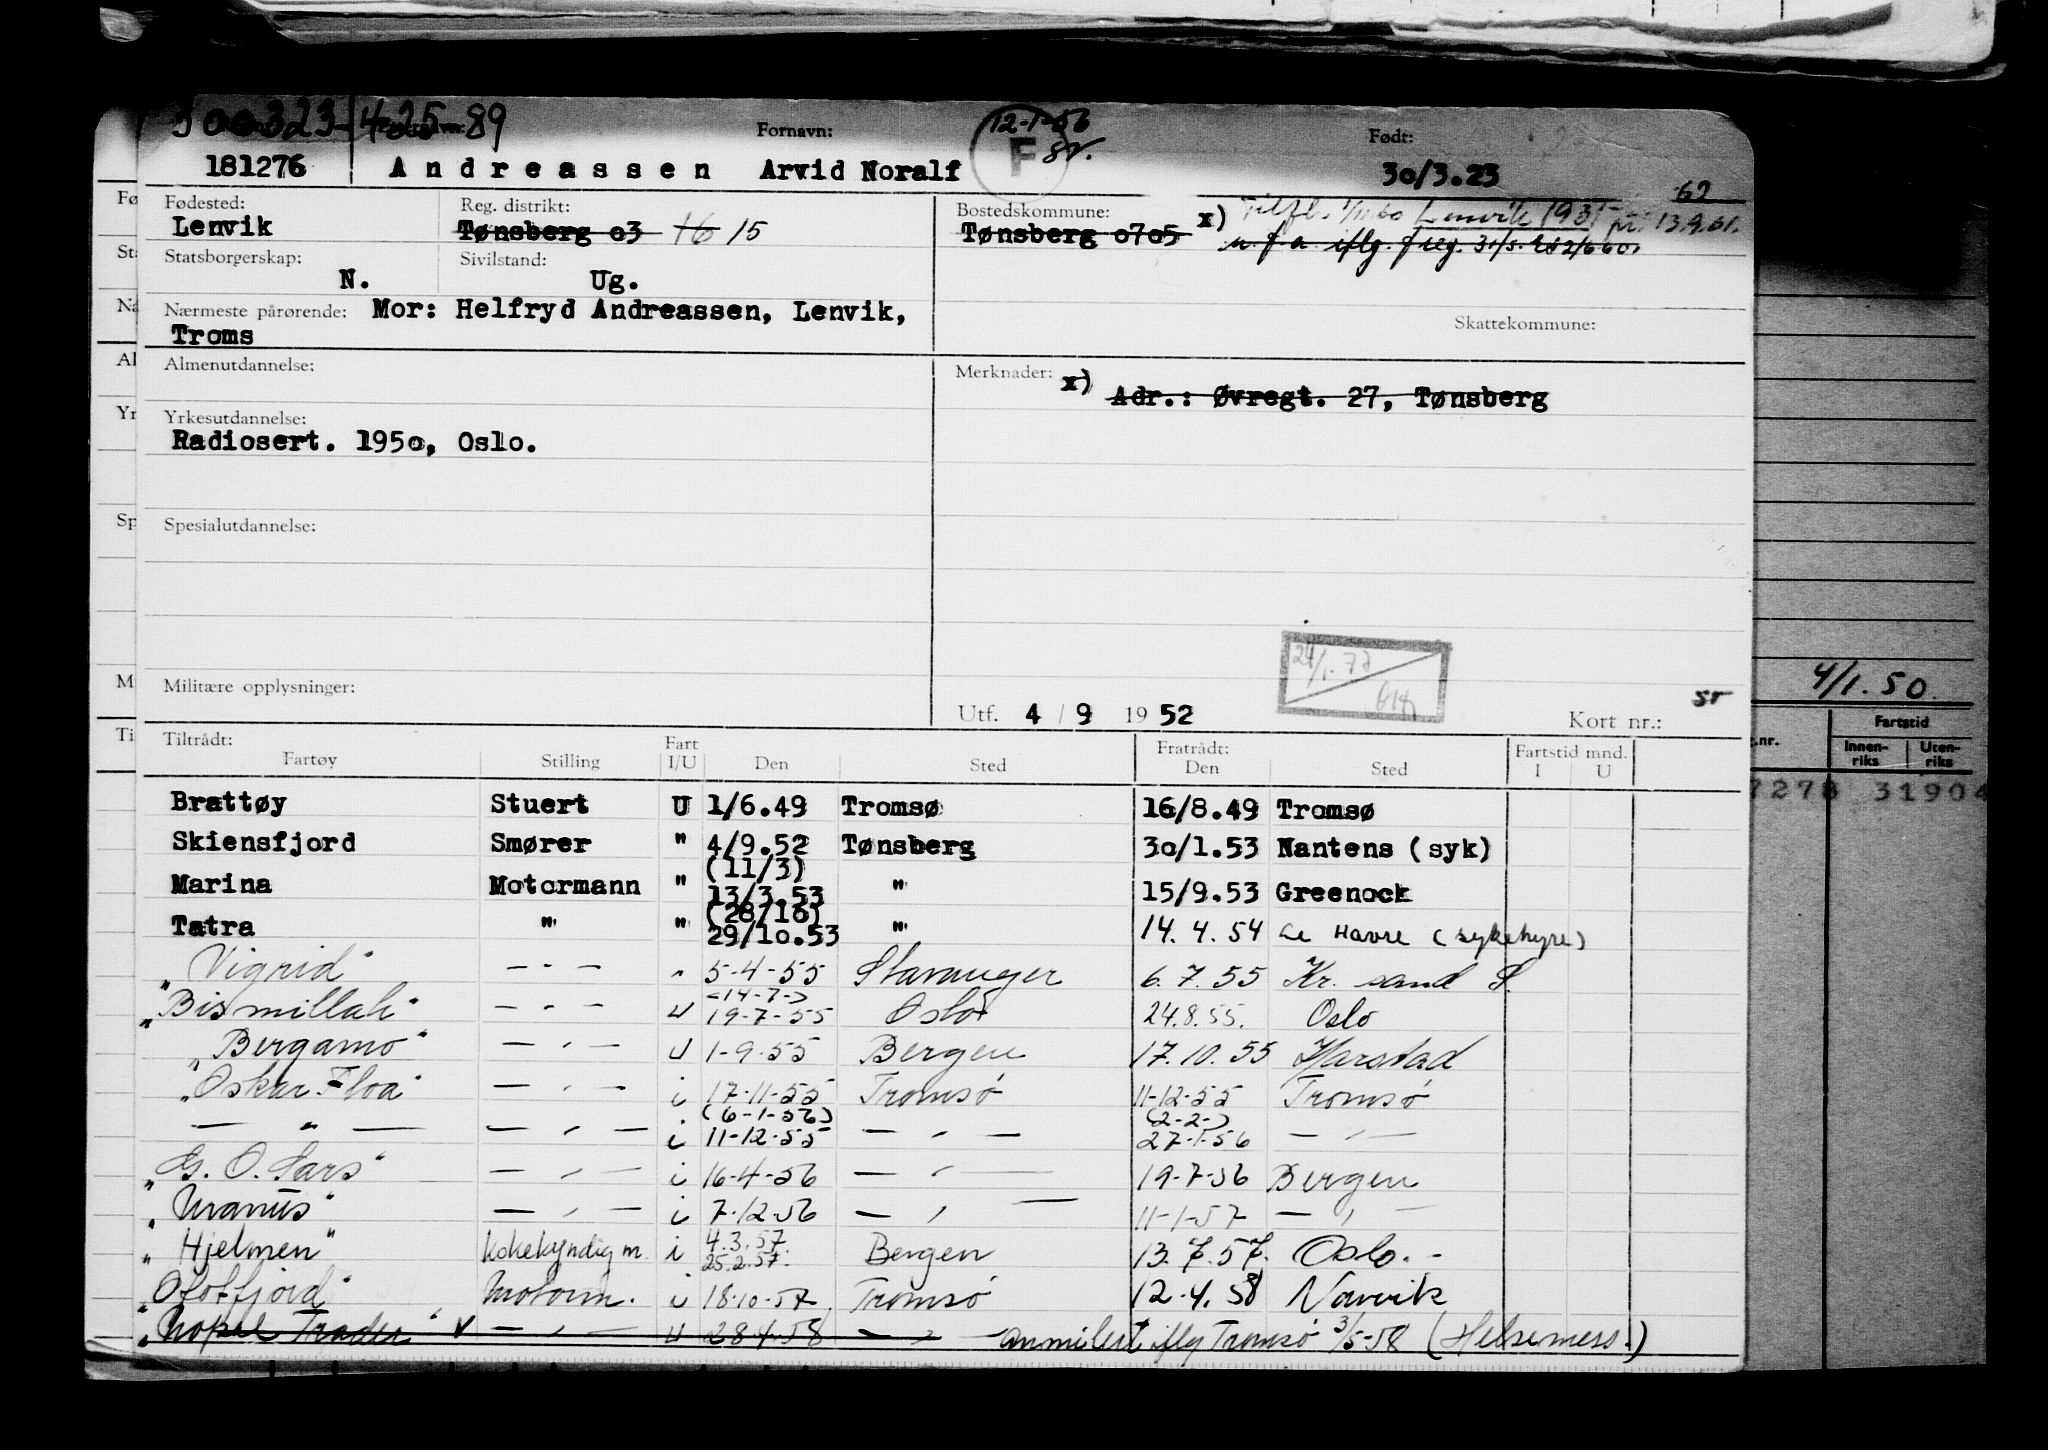 300323 425 89
12-1-56
Fornavn:
Født:
F
sr.
181276 Andreassen Arvid Noralf 30/3.23
62
Fødested: Reg. distrikt: Bostedskommune: x) Tilfl. 1/11 60 Lenvik 1931 13.9.61.
Lenvik Tønsberg o3 16 15 Tønsberg o7o5
u. f. a. iflg. f reg.
Statsborgerskap: Sivilstand:
N. Ug.
Nærmeste pårørende: Mor: Helfryd Andreassen, Lenvik,
Troms
Skattekommune:
Almenutdannelse:
Merknader: x)
Adr.: Øvregt. 27, Tønsberg
Yrkesutdannelse:
Radiosert. 195o, Oslo.
Spesialutdannelse:
24/1.77
Militære opplysninger:
sr
Utf. 4 / 9 19 52 Kort nr.:
4/1.50.
Tiltrådt: Fart Fratrådt: Fartstid mnd.
Fartøy Stilling I/U Den Sted Den Sted I U
g.nr. Fartstid
Innen-riks Uten-riks
7278 31904
Brattøy Stuert U 1/6.49 Tromsø 16/8.49 Tromsø
Skiensfjord Smører " 4/9.52 Tønsberg 3o/1.53 Nantens (syk)
(11/3)
Marina Motormann " 13/3.53 " 15/9.53 Greenock
(28/1o)
Tatra " " 29/1o.53 " 14. 4. 54 Le Havre (sykehyre)
"Vigrid" — " — " 5-4-55 Stavanger 6. 7. 55 Kr. sand S.
(14-7-)
"Bismillah" — " — U 19-7-55 Oslo 24.8.55. Oslo
"Bergamo" — " — U 1-9-55 Bergen 17.10.55 Harstad
"Oskar Floa" — " — i 17-11-55 Tromsø 11-12-55 Tromsø
(6-1-56) (2-2-)
— " — — " — i 11-12-55 — " — 27-1-56 — " —
"G. O. Sars" — " — i 16-4-56 — " — 19-7-56 Bergen
"Uranus" — " — i 7-12-56 — " — 11-1-57 — " —
"Hjelmen" kokekyndig m. i 4.3.57. Bergen 13.7.57. Oslo.-
25.2.57.
"Ofotfjord" Motorm. i 18-10-57 Tromsø 12.4.58 Narvik
"Nopal Trader" — " — U 28-4-58 — " — anmilert iflg Tromsø 3/5-58 (Helsemess.)
Fø
St
Nå
Al
Yr
Sp
M
Ti